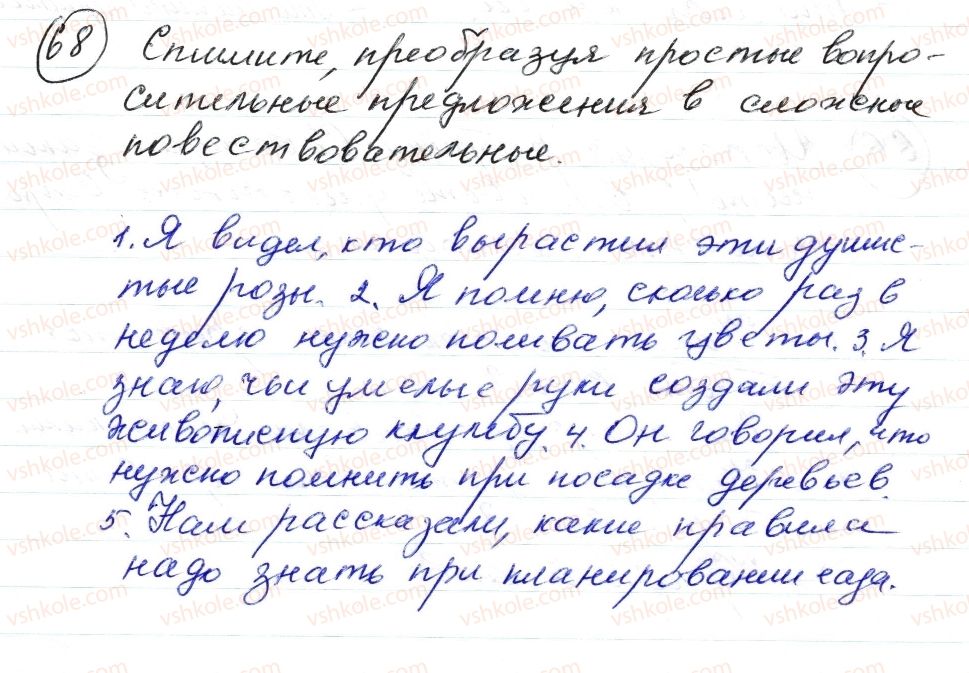 68 Спишите, преобразуя простые вопро-
сительные предложения в сложные
повествовательные.
1. Я видел, кто вырастил эти души-
стые розы. 2. Я помню, сколько раз в
неделю нужно поливать цветы. 3. Я
знаю, чьи умелые руки создали эту
живописную клумбу. 4. Он говорил, что
нужно помнить при посадке деревьев.
5. Нам рассказали, какие правила
надо знать при планировании сада.